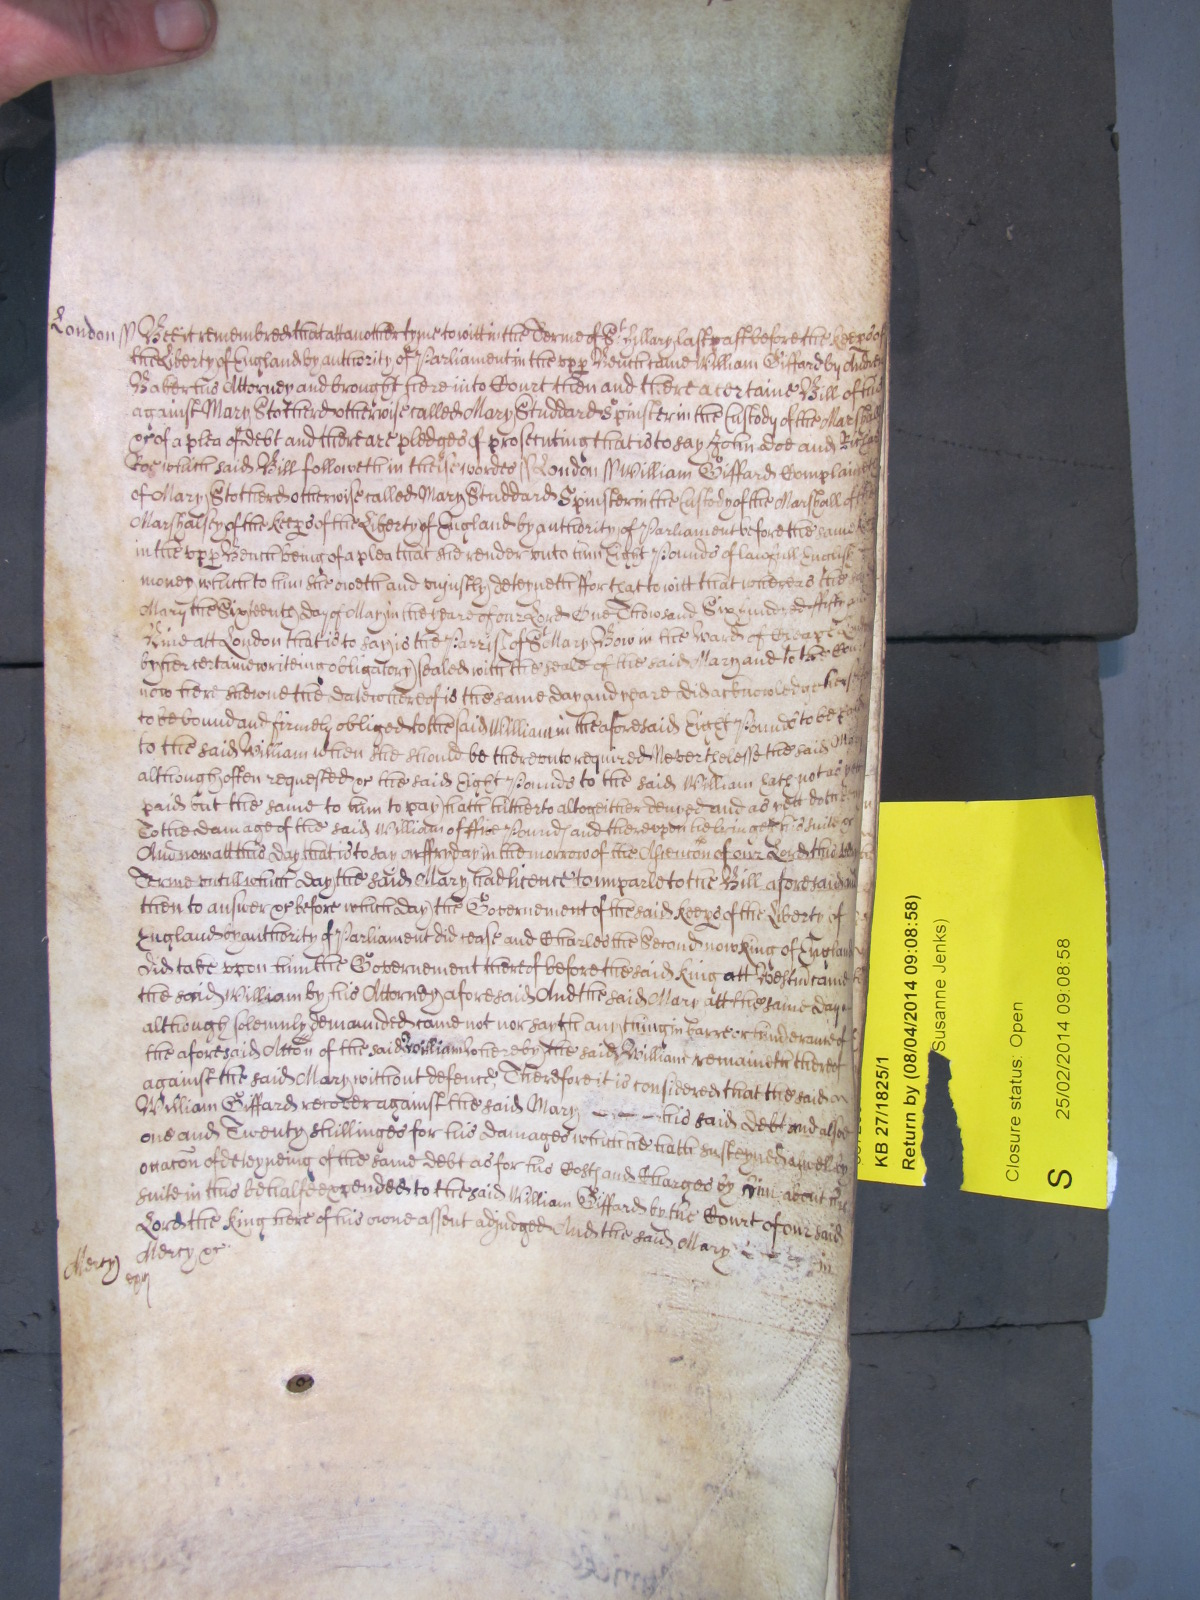 London ss Bee it remembred that att another tyme to witt in the Terme of St. Hillary last past before the keeps of
the Liberty of England by authority of Parliament in the upp Bench came William Giffard by Andrew
Baber his Attorney and brought here into Court then and there a certaine Bill of his
against Mary Stotherd otherwise called Mary Studdard Spinster in the Custody of the Marshall
&c of a plea of debt and there are pledges of prosecuting that is to say John Doe and Richard
Roe which said Bill followeth in theise wordes ss London ss William Giffard Complaineth
of Mary Stotherd otherwise called Mary Studdard Spinster in the Custody of the Marshall of the
Marshalsey of the keeps of the Liberty of England by authority of Parliament before the same
in the upp Bench being of a plea that she render unto him Eight Pounds of lawfull English
money which to him she oweth and unjustly deteyneth ffor that to witt that whereas the said
Mary the Sixteenth day of May in the yeare of our Lord One Thowsand Six hundred fifty and
Nine att London that is to say in the Parrish of St. Mary Bow in the Ward of Cheape London
by her certaine writeing obligatory sealed with the seale of the said Mary and to the Court
now here shewne the date whereof is the same day and yeare did acknowledge herselfe
to be bound and firmely obliged to the said William in the aforesaid Eight Pounds to be paid
to the said William when she should be thereunto required Neverthelesse the said Mary
although often requested &c the said Eight Pounds to the said William hath not as yet
paid but the same to him to pay hath hitherto altogeither denyed and as yett doth deny
To the damage of the said William of ffive Pounds and thereupon he bringeth his suite &c
And now att this day that is to say on ffryday in the morrow of the Assencon of our Lord this
Terme untill which day the said Mary had licence to imparle to the Bill aforesaid and
then to answer &c before which day the Governement of the said keeps of the Liberty of
England by authority of Parliament did cease and Charles the Second now king of England
did take upon him the Governement thereof before the said king att Westm came
the said William by his Attorney aforesaid And the said Mary att the same day
although solemnly demaunded came not nor sayth any thing in barre or hinderance of
the aforesaid Accon of the said William whereby the said William remaineth thereof
against the said Mary without defence, Therefore it is considered that the said
William Giffard recover against the said Mary his said debt and alsoe
one and Twenty shillinges for his damages which he hath susteyned aswell by
occacon of deteyneing of the same debt as for his Costs and Charges by him about his
suite in this behalfe expended to the said William Giffard by the Court of our said
Lord the king here of his owne assent adjudged And the said Mary in
Mercy Mercy &c
KB 27/1825/1
Return by (08/04/2014 09:08:58)
Susanne Jenks)
Closure status: Open
S 25/02/2014 09:08:58